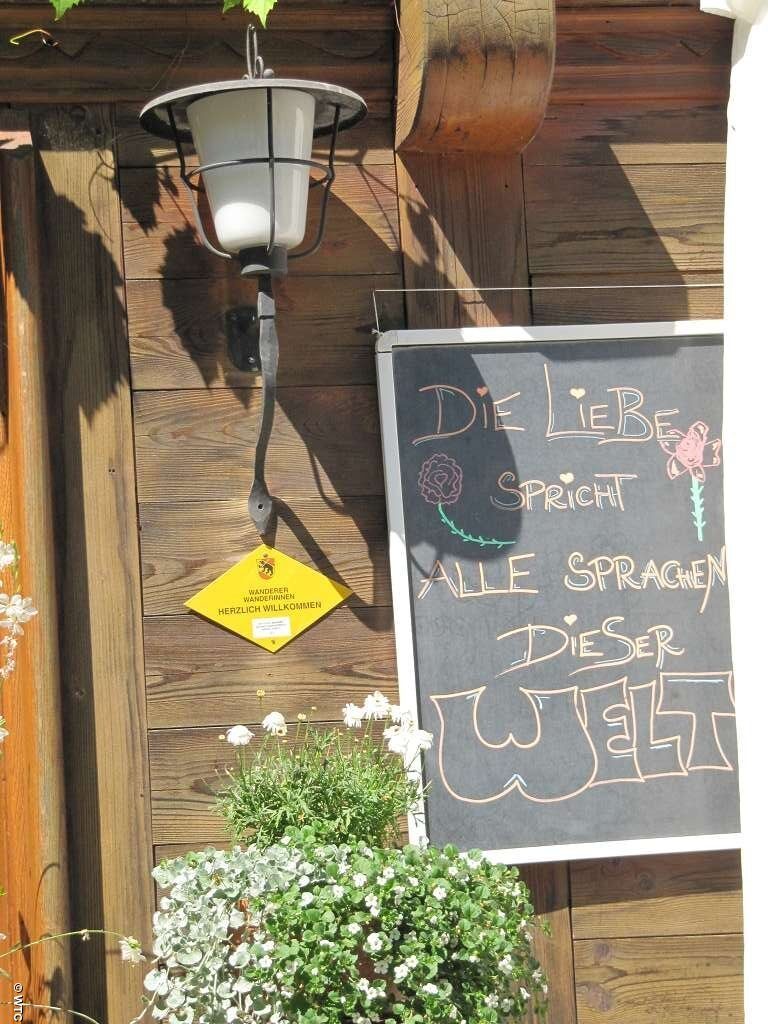 DiE LiEBE
SPRiCHT
ALLE SPRACHEN
DiESER
WELT
WANDERER
WANDERINNEN
HERZLICH WILLKOMMEN
© WTC